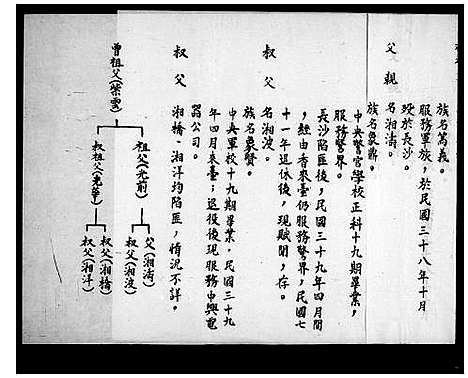 族名篤義。
服務軍旅，於民國三十八年十月
歿於長沙。
父親
名湘濤。
族名象鼎。
中央警官學校正科十九期畢業，
服務警界。
長沙陷匪後，民國三十九年四月間
，經由香來臺仍服務警界，民國七
十一年退休後，現賦閒，存。
叔父
名湘波。
族名象賢。
中央軍校十九期畢業．民國三十九
年四月來臺；退役後現服務中興電
器公司。
叔父
湘橋、湘洋均陷匪，情況不詳。
曾祖父(紫雲)
祖父(光前)
叔祖父(光華)
父(湘濤)
叔父(湘波)
叔父(湘橋)
叔父(湘洋)